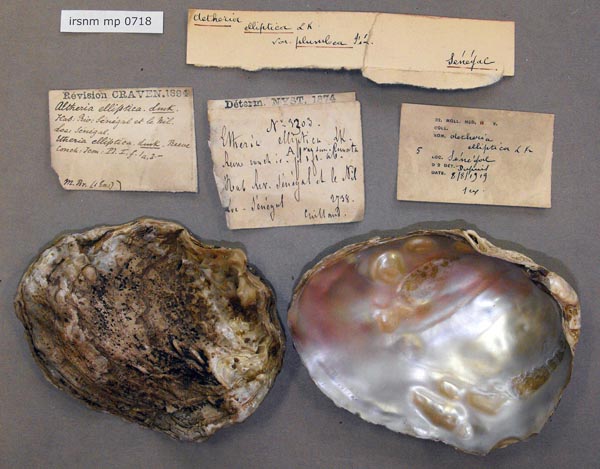 irsnm mp 0718
Aetheria
elliptica LK
var. plumbea Fér.
Sénégal
Révision CRAVEN. 1884
Aetheria elliptica. Lmk.
Hab. Riv. Sénégal et le Nil.
des: Sénégal.
Etheria elliptica. Lmk.
Conch: Icon. Pl. I. f.
Déterm. NYST. 1874
No. 3203.
Etheria elliptica. LK.
Hab. Riv. Sénégal et le Nil
Loc - Sénégal 2738.
Caillaud.
COLL.
NOM. Aetheria
elliptica LK
5 LOC. Sénégal
D'S DET. Dupuis
DATE. 8/8/1919